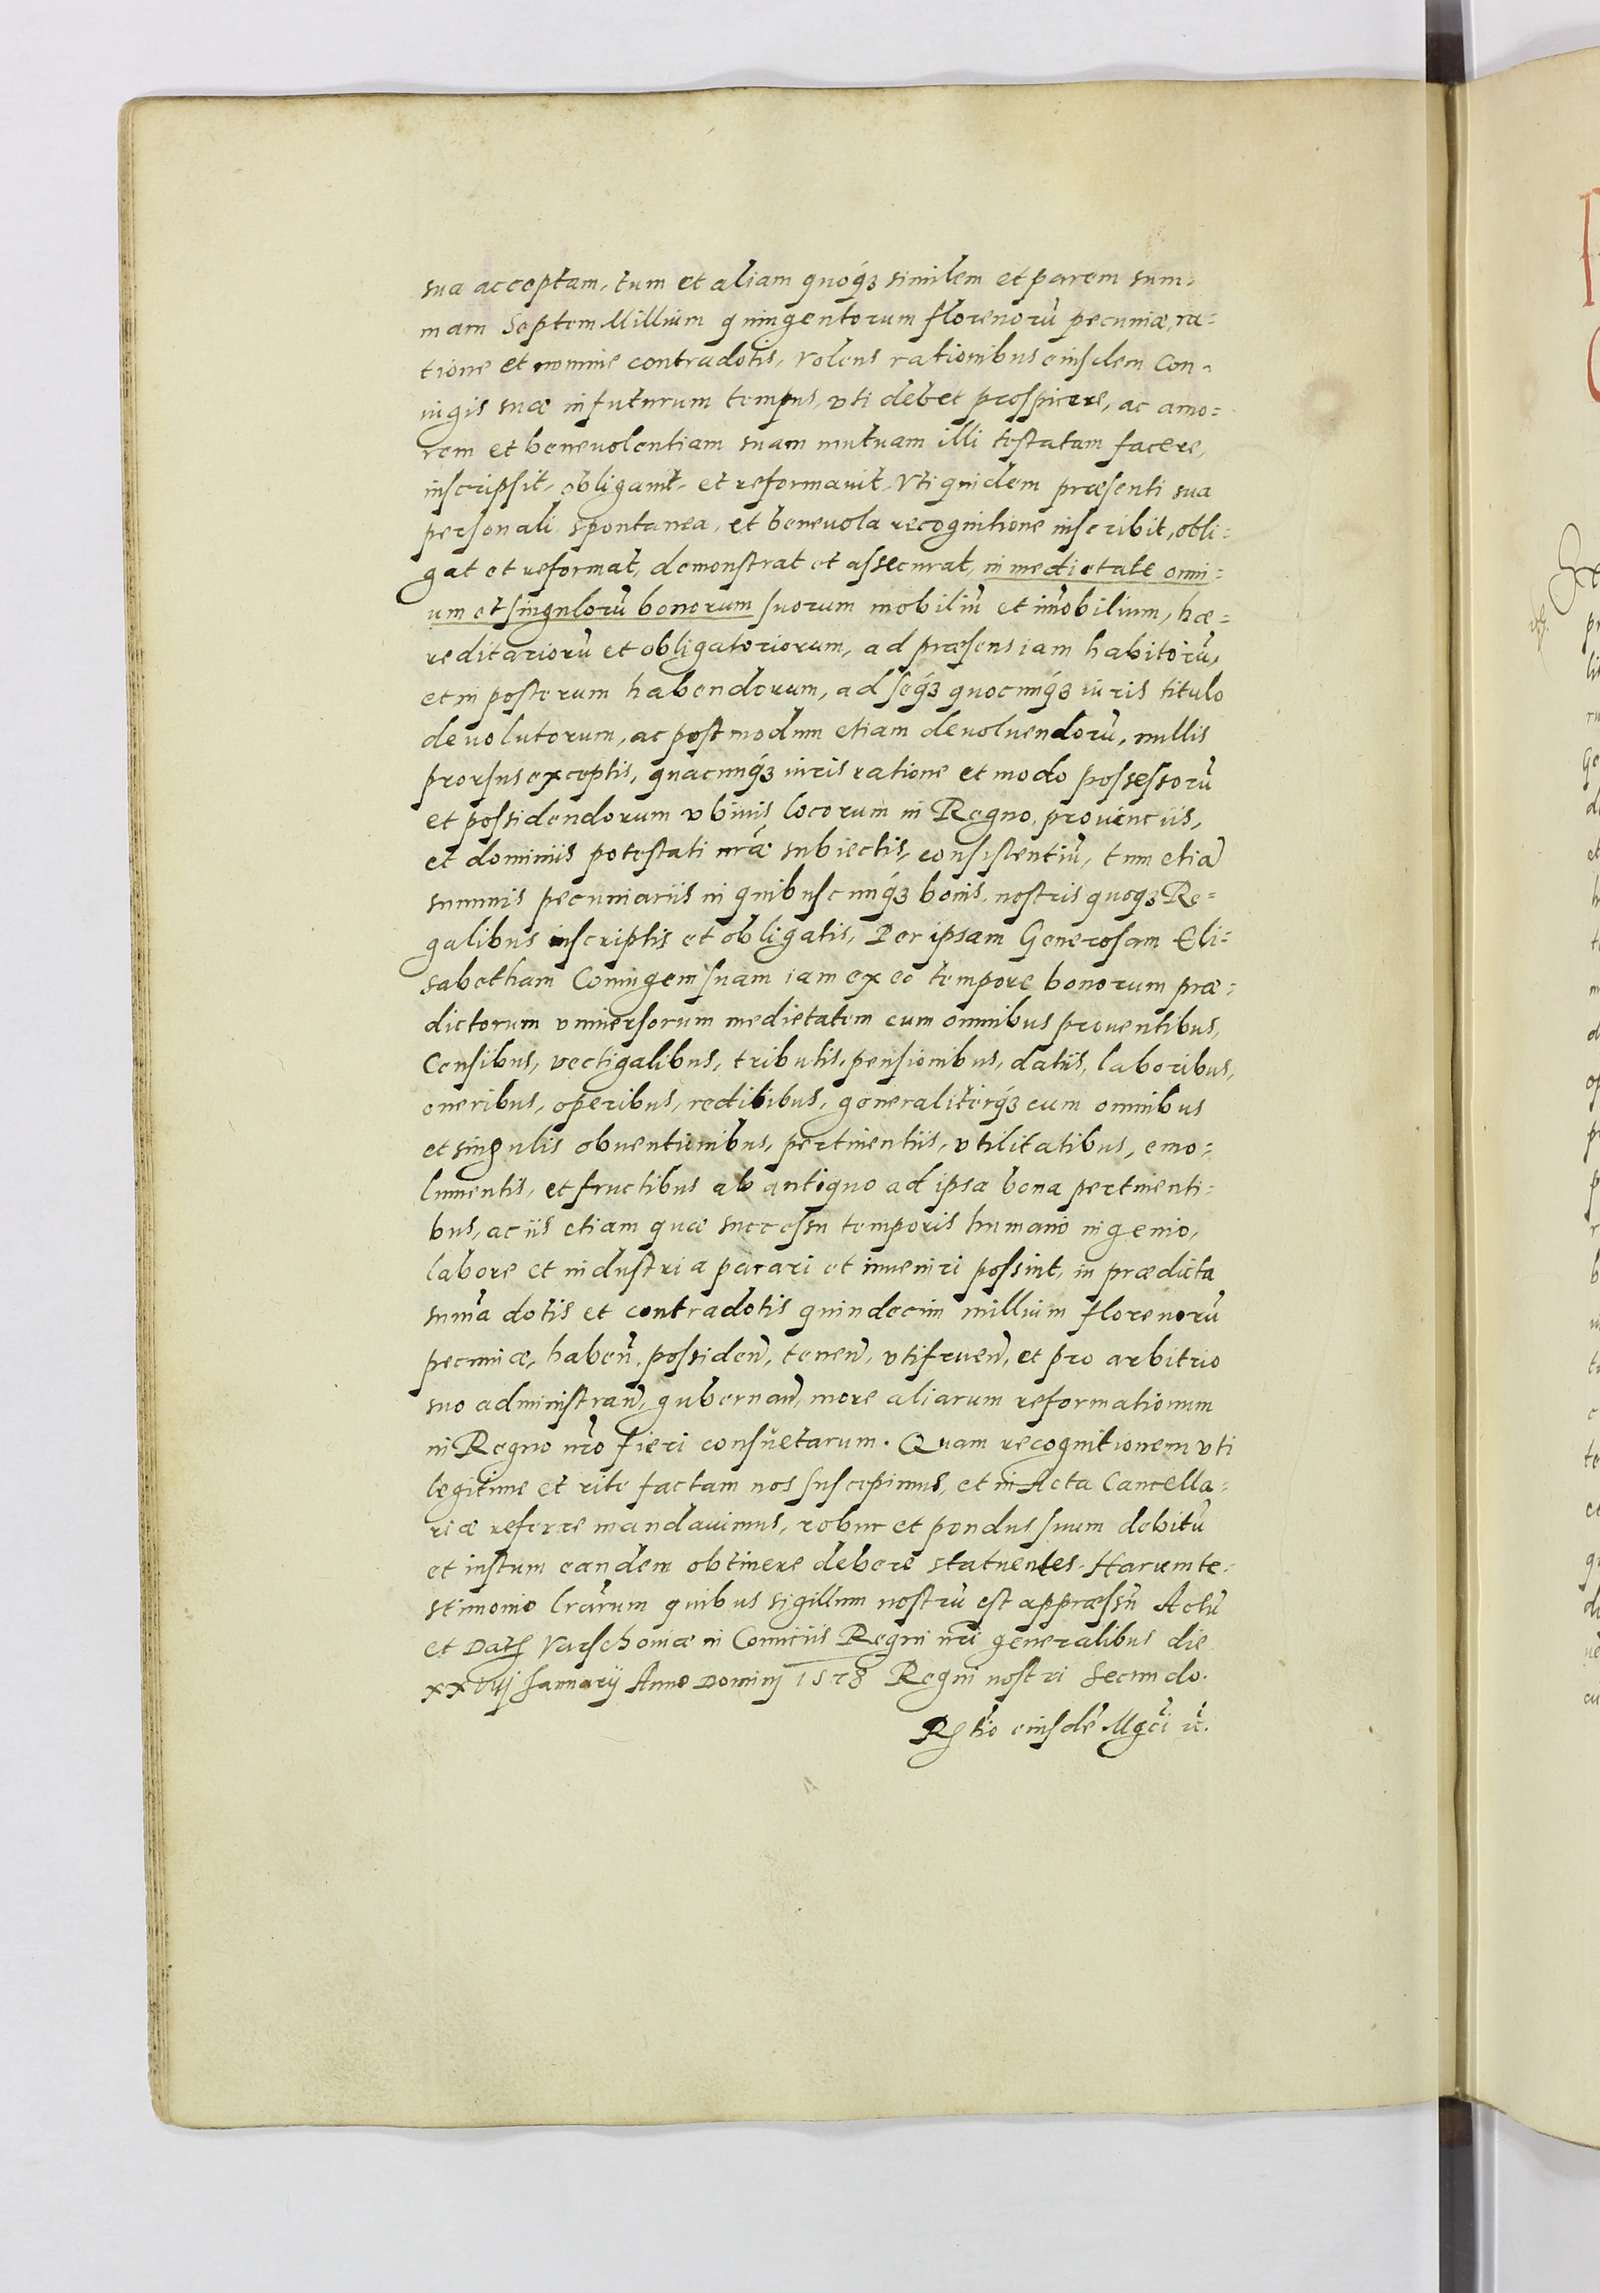 sua acceptam, tum et aliam quoq3 similem et parem sum-
mam Septem Millium quingentorum florenorū pecuniæ, ra=
tione et nomine contradotis, volens rationibus eiusdem Con-
iugis suæ in futurum tempus, vti debet prospicere, ac amo=
rem et beneuolentiam suam mutuam illi testatam facere,
inscripsit, obligauit, et reformauit, Vti quidem præsenti sua
personali spontanea, et beneuola recognitione inscribit, obli=
gat et reformat, demonstrat et assecurat, in medietate omni=
um et singulorū bonorum suorum mobiliū et im̄obilium, hæ=
reditariorū et obligatoriorum, ad præsens iam habitorū,
et in posterum habendorum, ad seq3 quocunq3 iuris titulo
deuolutorum, ac postmodum etiam deuoluendorū, nullis
prorsus exceptis, quacunq3 iuris ratione et modo possessorū
et possidendorum vbiuis locorum in Regno, prouinciis,
et dominiis potestati nr̄æ subiectis, consistentiū, tum etiā
summis pecuniariis in quibuscunq3 bonis, nostris quoq3 Re=
galibus inscriptis et obligatis, Per ipsam Generosam Eli=
sabetham Coniugem suam iam ex eo tempore bonorum præ=
dictorum vniuersorum medietatem cum omnibus prouentibus,
Censibus, vectigalibus, tributis, pensionibus, datiis, laboribus,
oneribus, operibus, reditibus, generaliterq3 cum omnibus
et singulis obuentionibus, pertinentiis, vtilitatibus, emo=
lumentis, et fructibus ab antiquo ad ipsa bona pertinenti=
bus, ac iis etiam quæ successu temporis humano ingenio,
labore et industria parari et inueniri possint, in prædicta
sum̄a dotis et contradotis quindecim millium florenorū
pecuniæ, haben̄, possiden̄, tenen̄, vtifruen̄, et pro arbitrio
suo administran̄, gubernan̄, more aliarum reformationum
in Regno nr̄o fieri consuetarum. Quam recognitionem vti
legitime et rite factam nos suscepimus, et in Acta Cancella=
riæ referre mandauimus, robur et pondus suum debitū
et iustum eandem obtinere debere statuentes. Harum te=
stimonio lr̄arum quibus sigillum nostrū est appræssū Actū
et Dat Varschouiæ in Comiciis Regni nr̄i generalibus die
Januarij Anno Dominj 1578 Regni nostri Secundo.
Rtio eiusdē Mgci